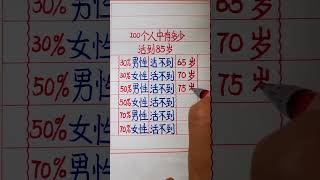 100个人中有多少
活到85岁
30% 男性 活不到 65 岁
30% 女性 活不到 70 岁
50% 男性 活不到 75 岁
50% 女性 活不到
70% 男性 活不到
70% 女性 活不到
30%
30%
50%
50%
70%
男
女
男
女
男
岁
岁
岁